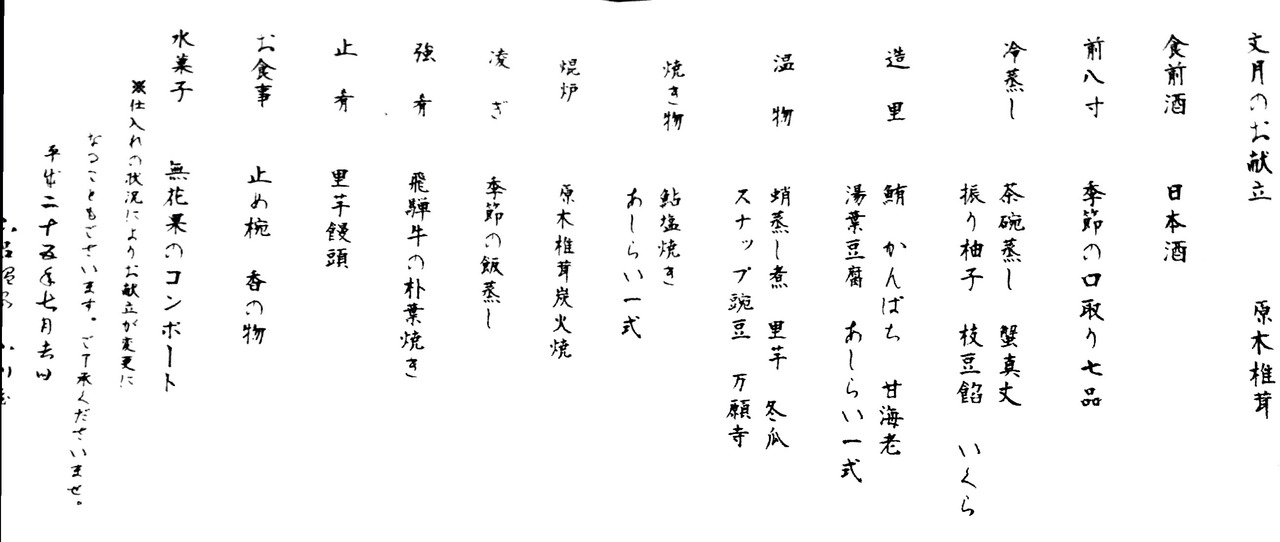 文月のお献立 原木椎茸
食前酒 日本酒
前八寸 季節の口取り七品
冷蒸し 茶碗蒸し 蟹真丈
振り柚子 枝豆餡 いくら
造里 鮪 かんぱち 甘海老
湯葉豆腐 あしらい一式
温物 蛸蒸し煮 里芋 冬瓜
スナップ豌豆 万願寺
焼き物 鮎塩焼き
あしらい一式
焜炉 原木椎茸炭火焼
凌ぎ 季節の飯蒸し
強肴 飛騨牛の朴葉焼き
止肴 里芋饅頭
お食事 止め椀 香の物
水菓子 無花果のコンポート
※仕入れの状況によりお献立が変更に
なることもございます。ご了承くださいませ。
平成二十五年七月吉日